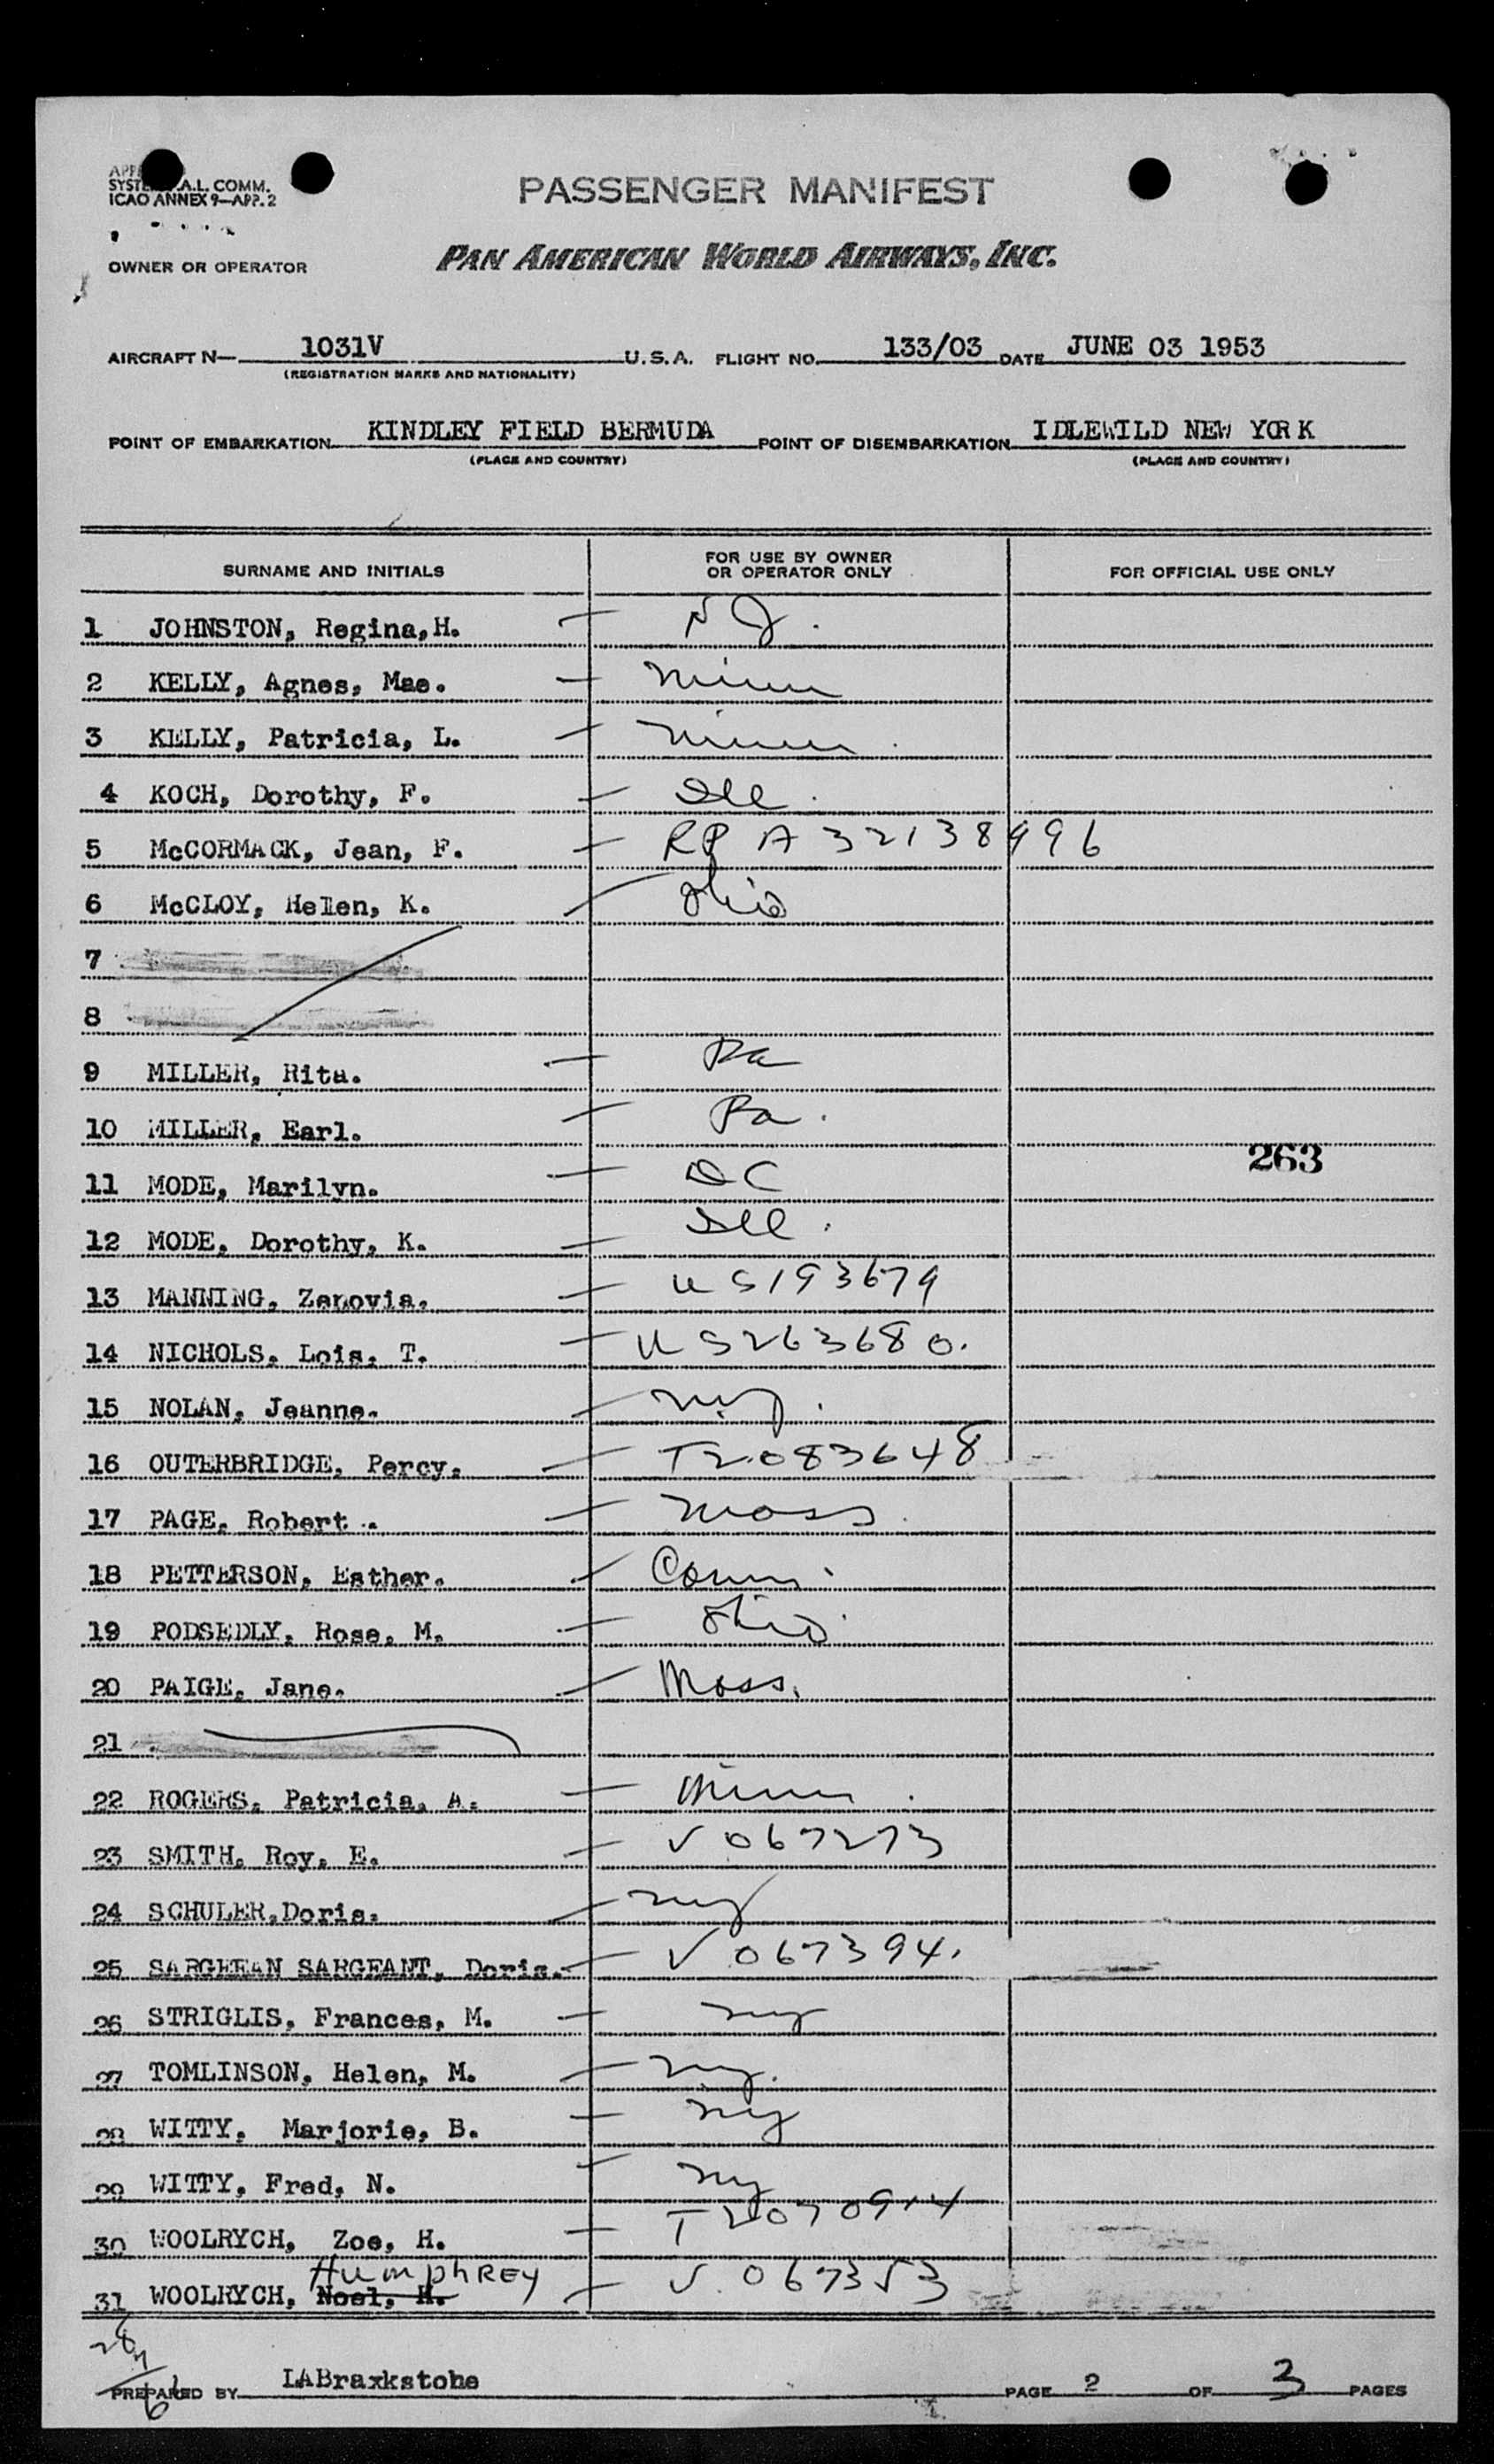 SYSTE A.L. COMM.
ICAO ANNEX 9—APP. 2
PASSENGER MANIFEST
OWNER OR OPERATOR PAN AMERICAN WORLD AIRWAYS, INC.
AIRCRAFT N— 1031V U.S.A. FLIGHT NO. 133/03 DATE JUNE 03 1953
(REGISTRATION MARKS AND NATIONALITY)
POINT OF EMBARKATION KINDLEY FIELD BERMUDA POINT OF DISEMBARKATION IDLEWILD NEW YORK
(PLACE AND COUNTRY) (PLACE AND COUNTRY)
SURNAME AND INITIALS FOR USE BY OWNER OR OPERATOR ONLY FOR OFFICIAL USE ONLY
1 JOHNSTON, Regina,H. — NJ.
2 KELLY, Agnes, Mae. — Minn
3 KELLY, Patricia, L. — Minn.
4 KOCH, Dorothy, F. — Ill.
5 McCORMACK, Jean, F. — RP A32138996
6 McCLOY, Helen, K. — Ohio
7
8
9 MILLER, Rita. — Pa
10 MILLER, Earl. — Pa.
263
11 MODE, Marilyn. — DC
12 MODE, Dorothy, K. — Ill.
13 MANNING, Zenovia. — US193679
14 NICHOLS, Lois, T. — US263680.
15 NOLAN, Jeanne. — NY.
16 OUTERBRIDGE, Percy. — T2083648
17 PAGE, Robert . — Mass.
18 PETTERSON, Esther. — Conn.
19 PODSEDLY, Rose, M. — Ohio.
20 PAIGE, Jane. — Mass.
21
22 ROGERS, Patricia, A. — Minn.
23 SMITH, Roy, E. — V067273
24 SCHULER,Doris. — NY
25 SARGEEAN SARGEANT, Doris. — V067394.
26 STRIGLIS, Frances, M. — NY
27 TOMLINSON, Helen, M. — NY.
28 WITTY, Marjorie, B. — NY
29 WITTY, Fred, N. — NY
30 WOOLRYCH, Zoe, H. — T2070914
Humphrey
31 WOOLRYCH, Noel, H. — V.067353
PREPARED BY LABraxkstohe PAGE 2 OF 3 PAGES